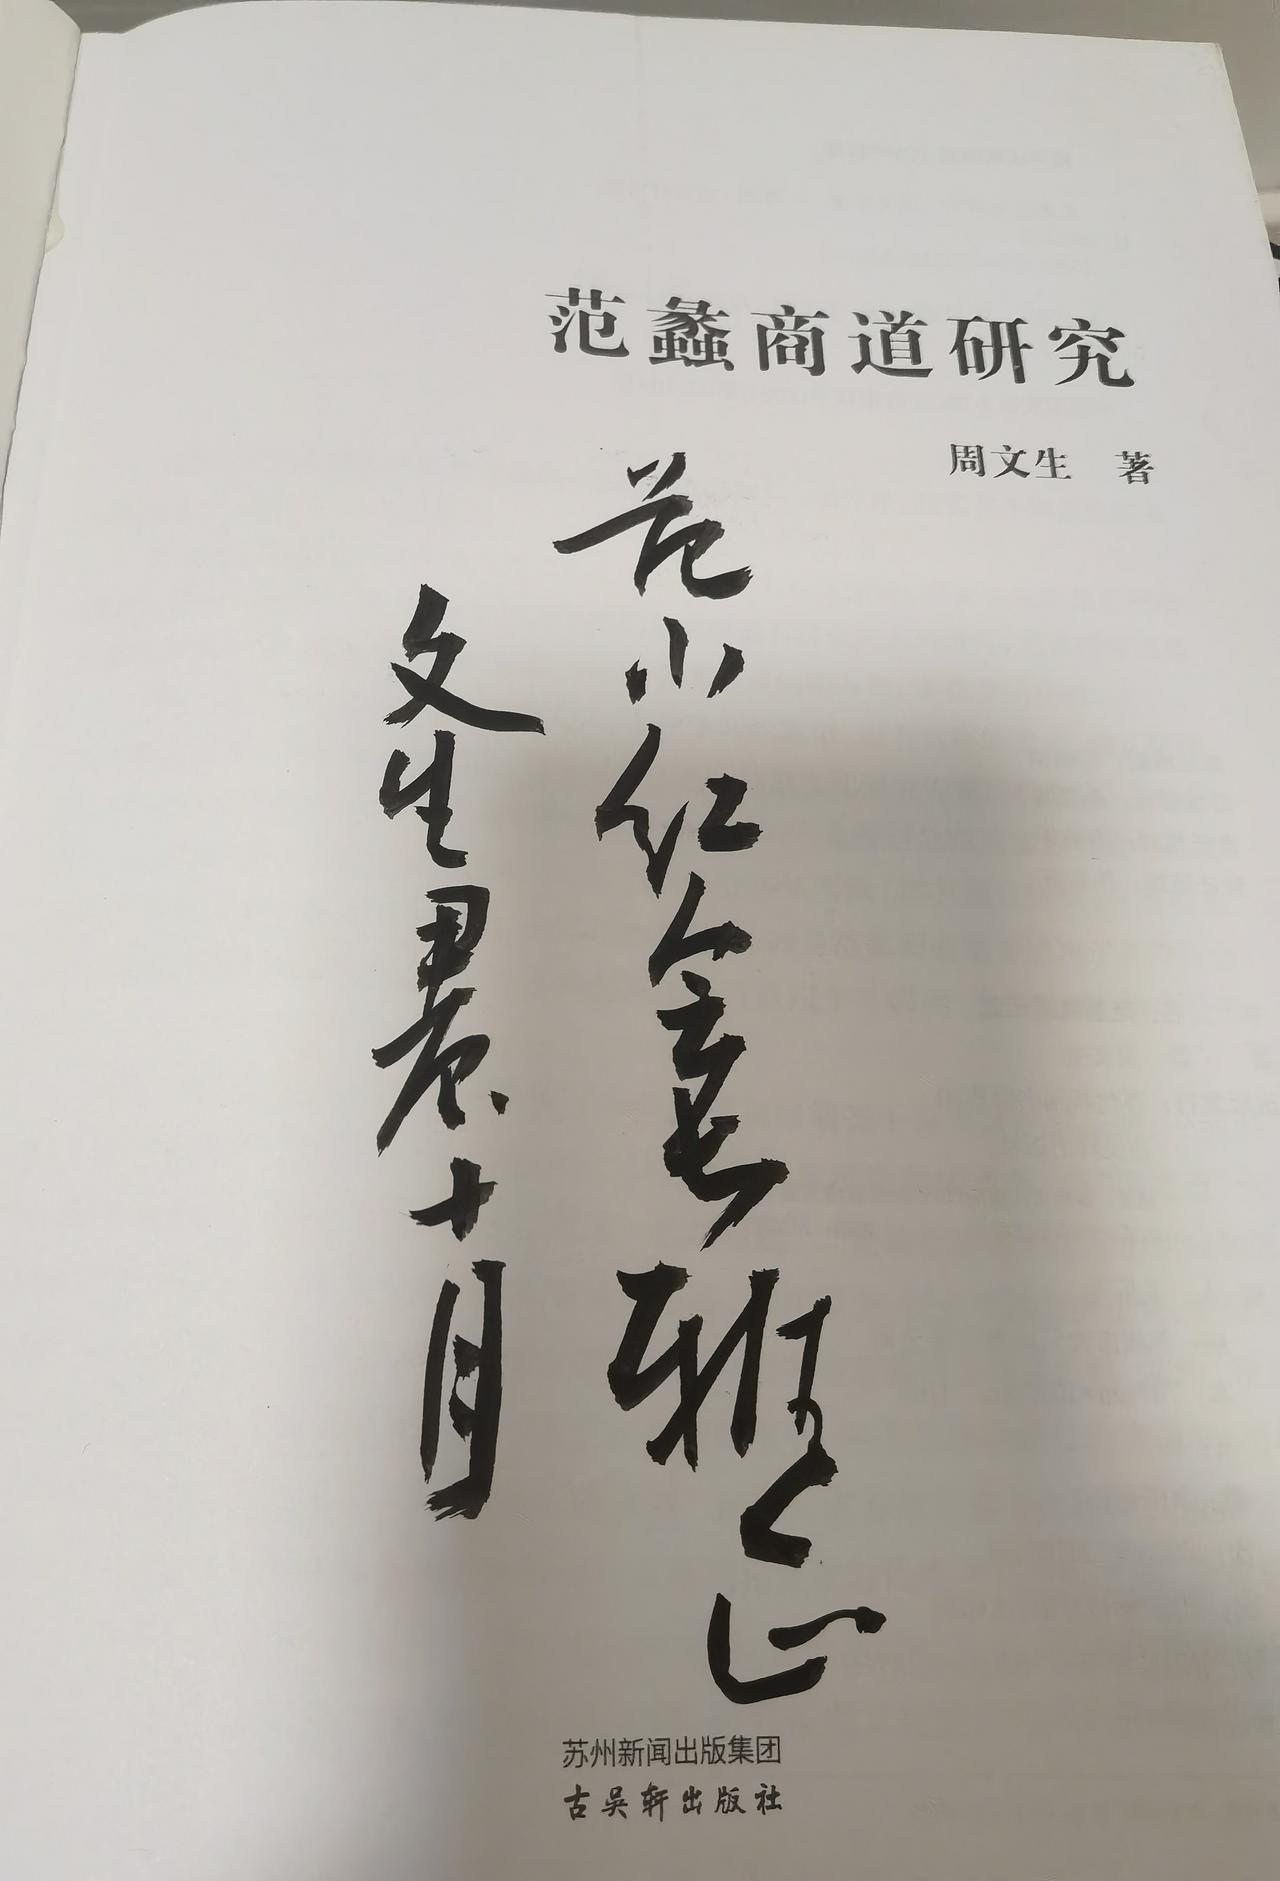 范蠡商道研究
周文生 著
范小红会长雅正
文生甲辰十月
苏州新闻出版集团
古吴轩出版社